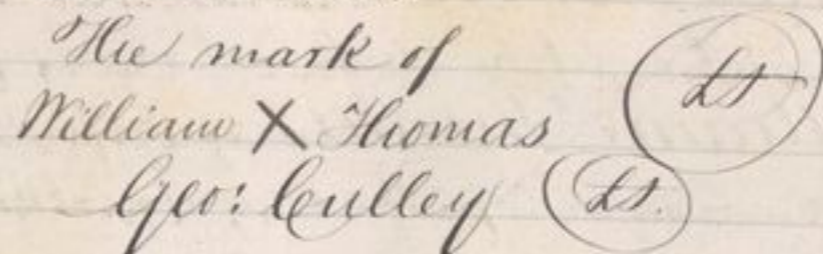 The mark of
William X Thomas LS
Geo: Culley LS.